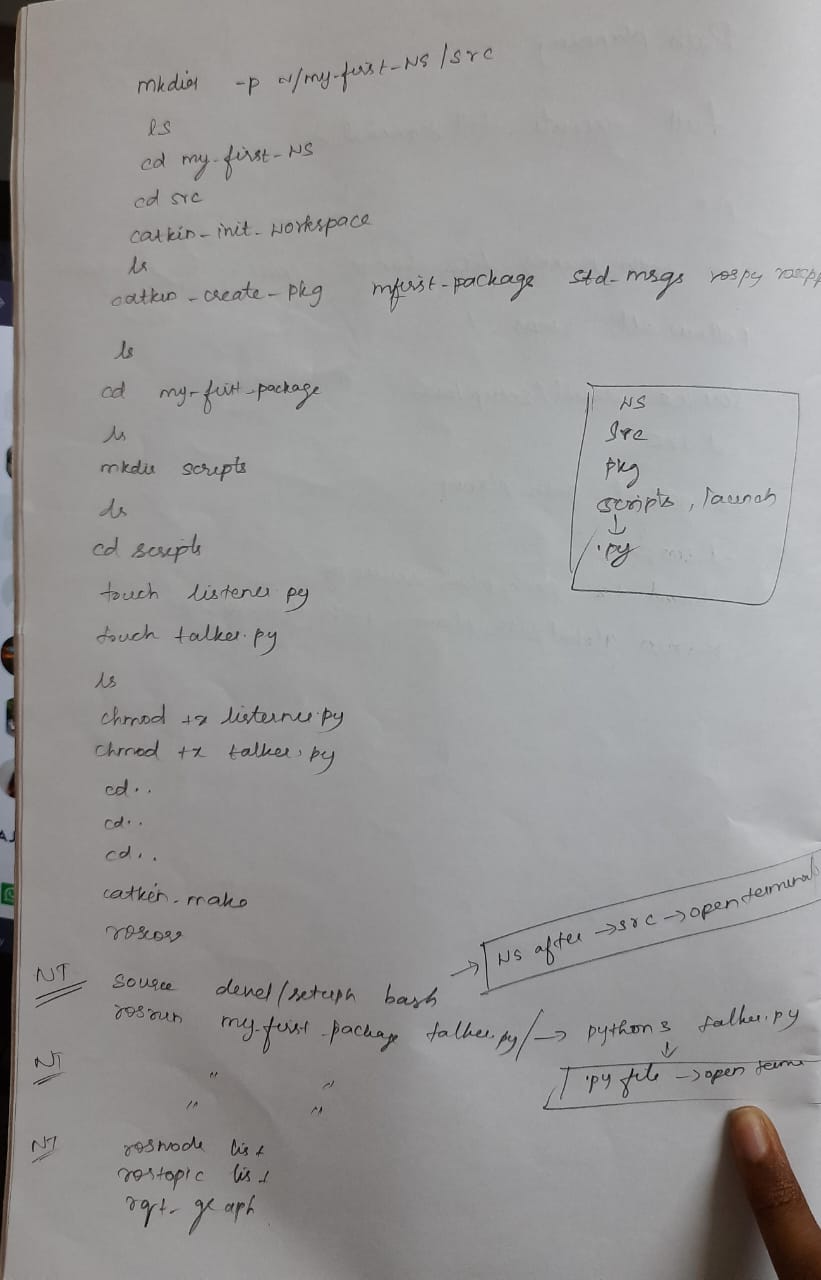 mkdir -p ~/my-first-NS/src
ls
cd my-first-NS
cd src
catkin-init-workspace
ls
catkin-create-pkg mfirst-package std-msgs rospy
ls
cd my-first-package
ls
mkdir scripts
ls
cd scripts
touch listener py
touch talker.py
ls
chmod +x listerner.py
chmod +x talker.py
cd..
cd..
cd..
catkin-make
roscore
NT source devel/setup bash
rosrun my-first-package talker.py/→ python3 talker.py
NT " "
" "
NT rosnode list
rostopic list
rqt-graph
NS
src
pkg
scripts, launch
↓
.py
→ NS after → src → open terminal
↓
.py file → open